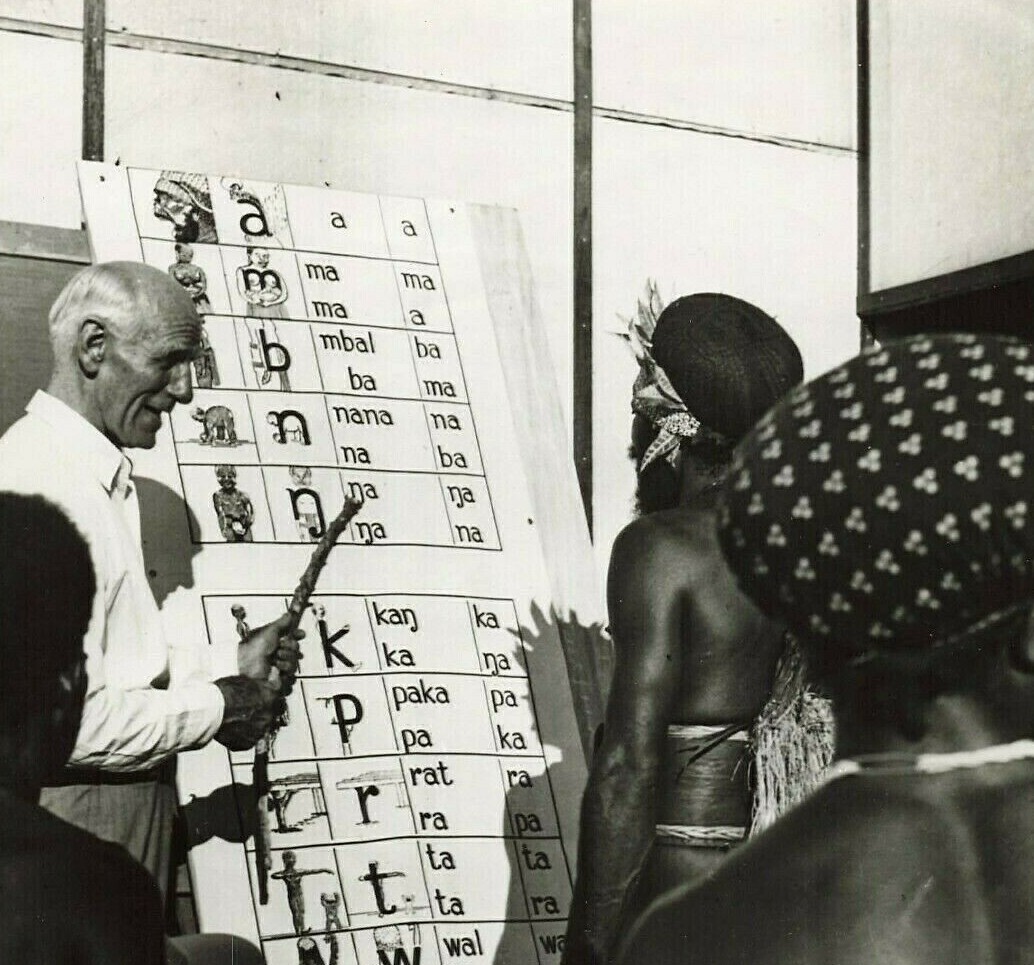 a a a
m ma ma
ma a
b mbal ba
ba ma
n nana na
na ba
ŋ ŋa ŋa
ŋa na
k kaŋ ka
ka ŋa
p paka pa
pa ka
r r rat ra
ra pa
t ta ta
ta ra
w wal